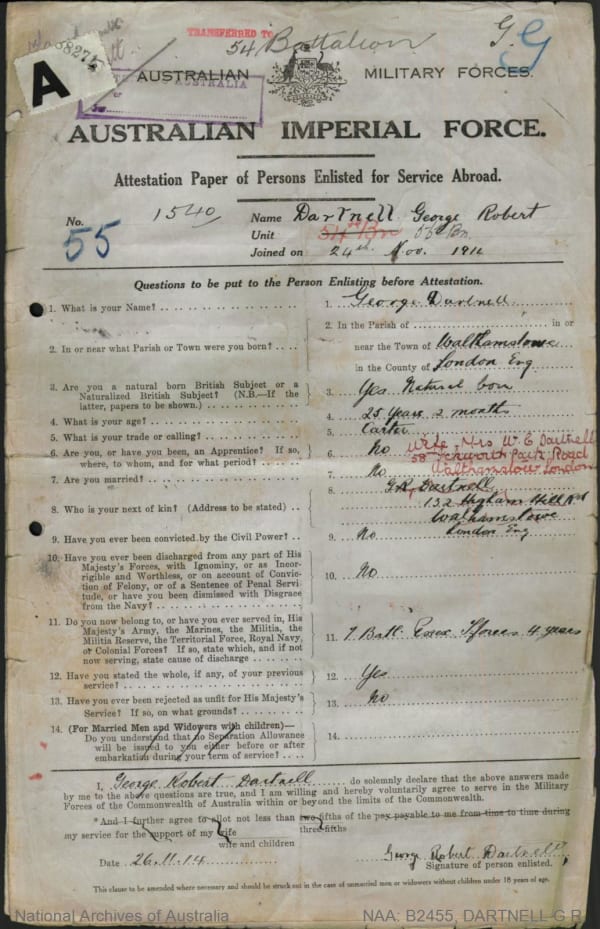 TRANSFERRED TO
54 Battalion
G. G
A
38274
AUSTRALIA
AUSTRALIAN MILITARY FORCES.
AUSTRALIAN IMPERIAL FORCE.
Attestation Paper of Persons Enlisted for Service Abroad.
No. 1540 Name Dartnell George Robert
55 Unit 54th Bn 56 Bn
Joined on 24th Nov. 1914
Questions to be put to the Person Enlisting before Attestation.
1. What is your Name? 1. George Dartnell
2. In or near what Parish or Town were you born? 2. In the Parish of in or
near the Town of Walthamstowe
in the County of London Eng
3. Are you a natural born British Subject or a
Naturalized British Subject? (N.B.—If the
latter, papers to be shown.) 3. Yes Natural born
4. What is your age? 4. 25 years 2 months
5. What is your trade or calling? 5. Carter
6. Are you, or have you been, an Apprentice? If so,
where, to whom, and for what period? 6. No
Wife Mrs W. E Dartnell
58 Park Road
Walthamstow London
7. Are you married? 7. No
8. Who is your next of kin? (Address to be stated) 8. G.R. Dartnell
132 Higham Hill Rd
Walthamstowe
London Eng
9. Have you ever been convicted by the Civil Power? 9. No
10. Have you ever been discharged from any part of His
Majesty's Forces, with Ignominy, or as Incor-
rigible and Worthless, or on account of Convic-
tion of Felony, or of a Sentence of Penal Servi-
tude, or have you been dismissed with Disgrace
from the Navy? 10. No
11. Do you now belong to, or have you ever served in, His
Majesty's Army, the Marines, the Militia, the
Militia Reserve, the Territorial Force, Royal Navy,
or Colonial Forces? If so, state which, and if not
now serving, state cause of discharge 11. 7 Batt. Essex T forces 4 years
12. Have you stated the whole, if any, of your previous
service? 12. Yes
13. Have you ever been rejected as unfit for His Majesty's
Service? If so, on what grounds? 13. No
14. (For Married Men and Widowers with children)—
Do you understand that no Separation Allowance
will be issued to you either before or after
embarkation during your term of service? 14.
I, George Robert Dartnell do solemnly declare that the above answers made
by me to the above questions are true, and I am willing and hereby voluntarily agree to serve in the Military
Forces of the Commonwealth of Australia within or beyond the limits of the Commonwealth.
*And I further agree to allot not less than two-fifths of the pay payable to me from time to time during
three-fifths
my service for the support of my wife
wife and children
Date 26.11.14 George Robert Dartnell
Signature of person enlisted.
This clause to be amended where necessary and should be struck out in the case of unmarried men or widowers without children under 18 years of age.
National Archives of Australia NAA: B2455, DARTNELL G R